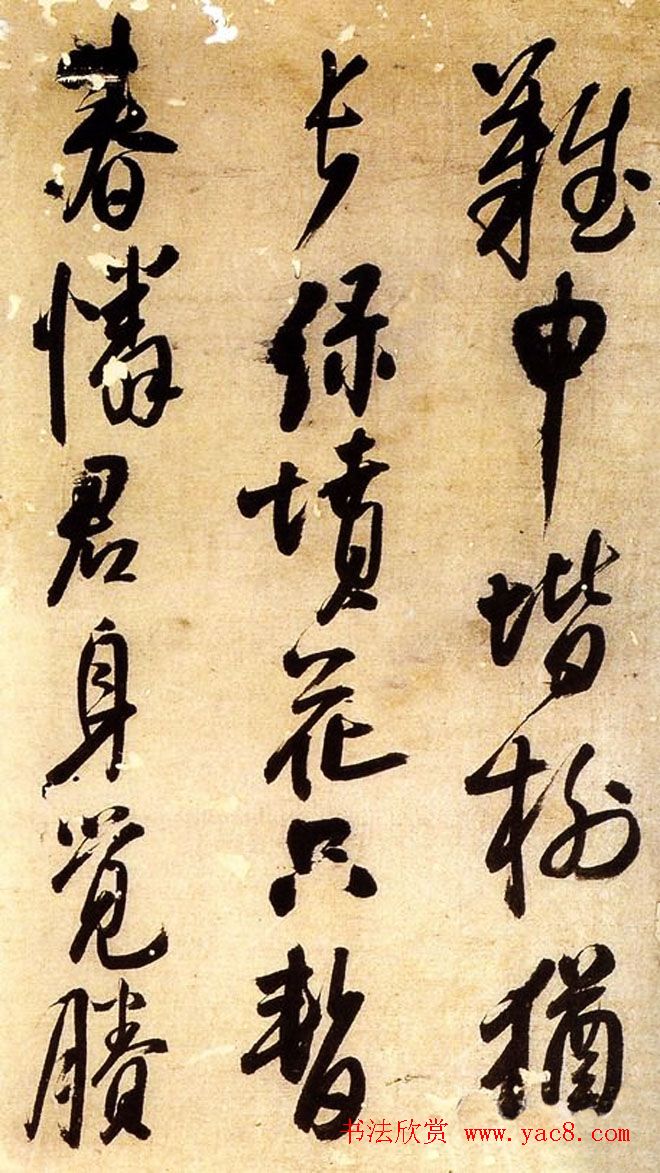 難申堦柳猶
長緑墳花只暫
春憐君身覺賸
书法欣赏 www.yac8.com